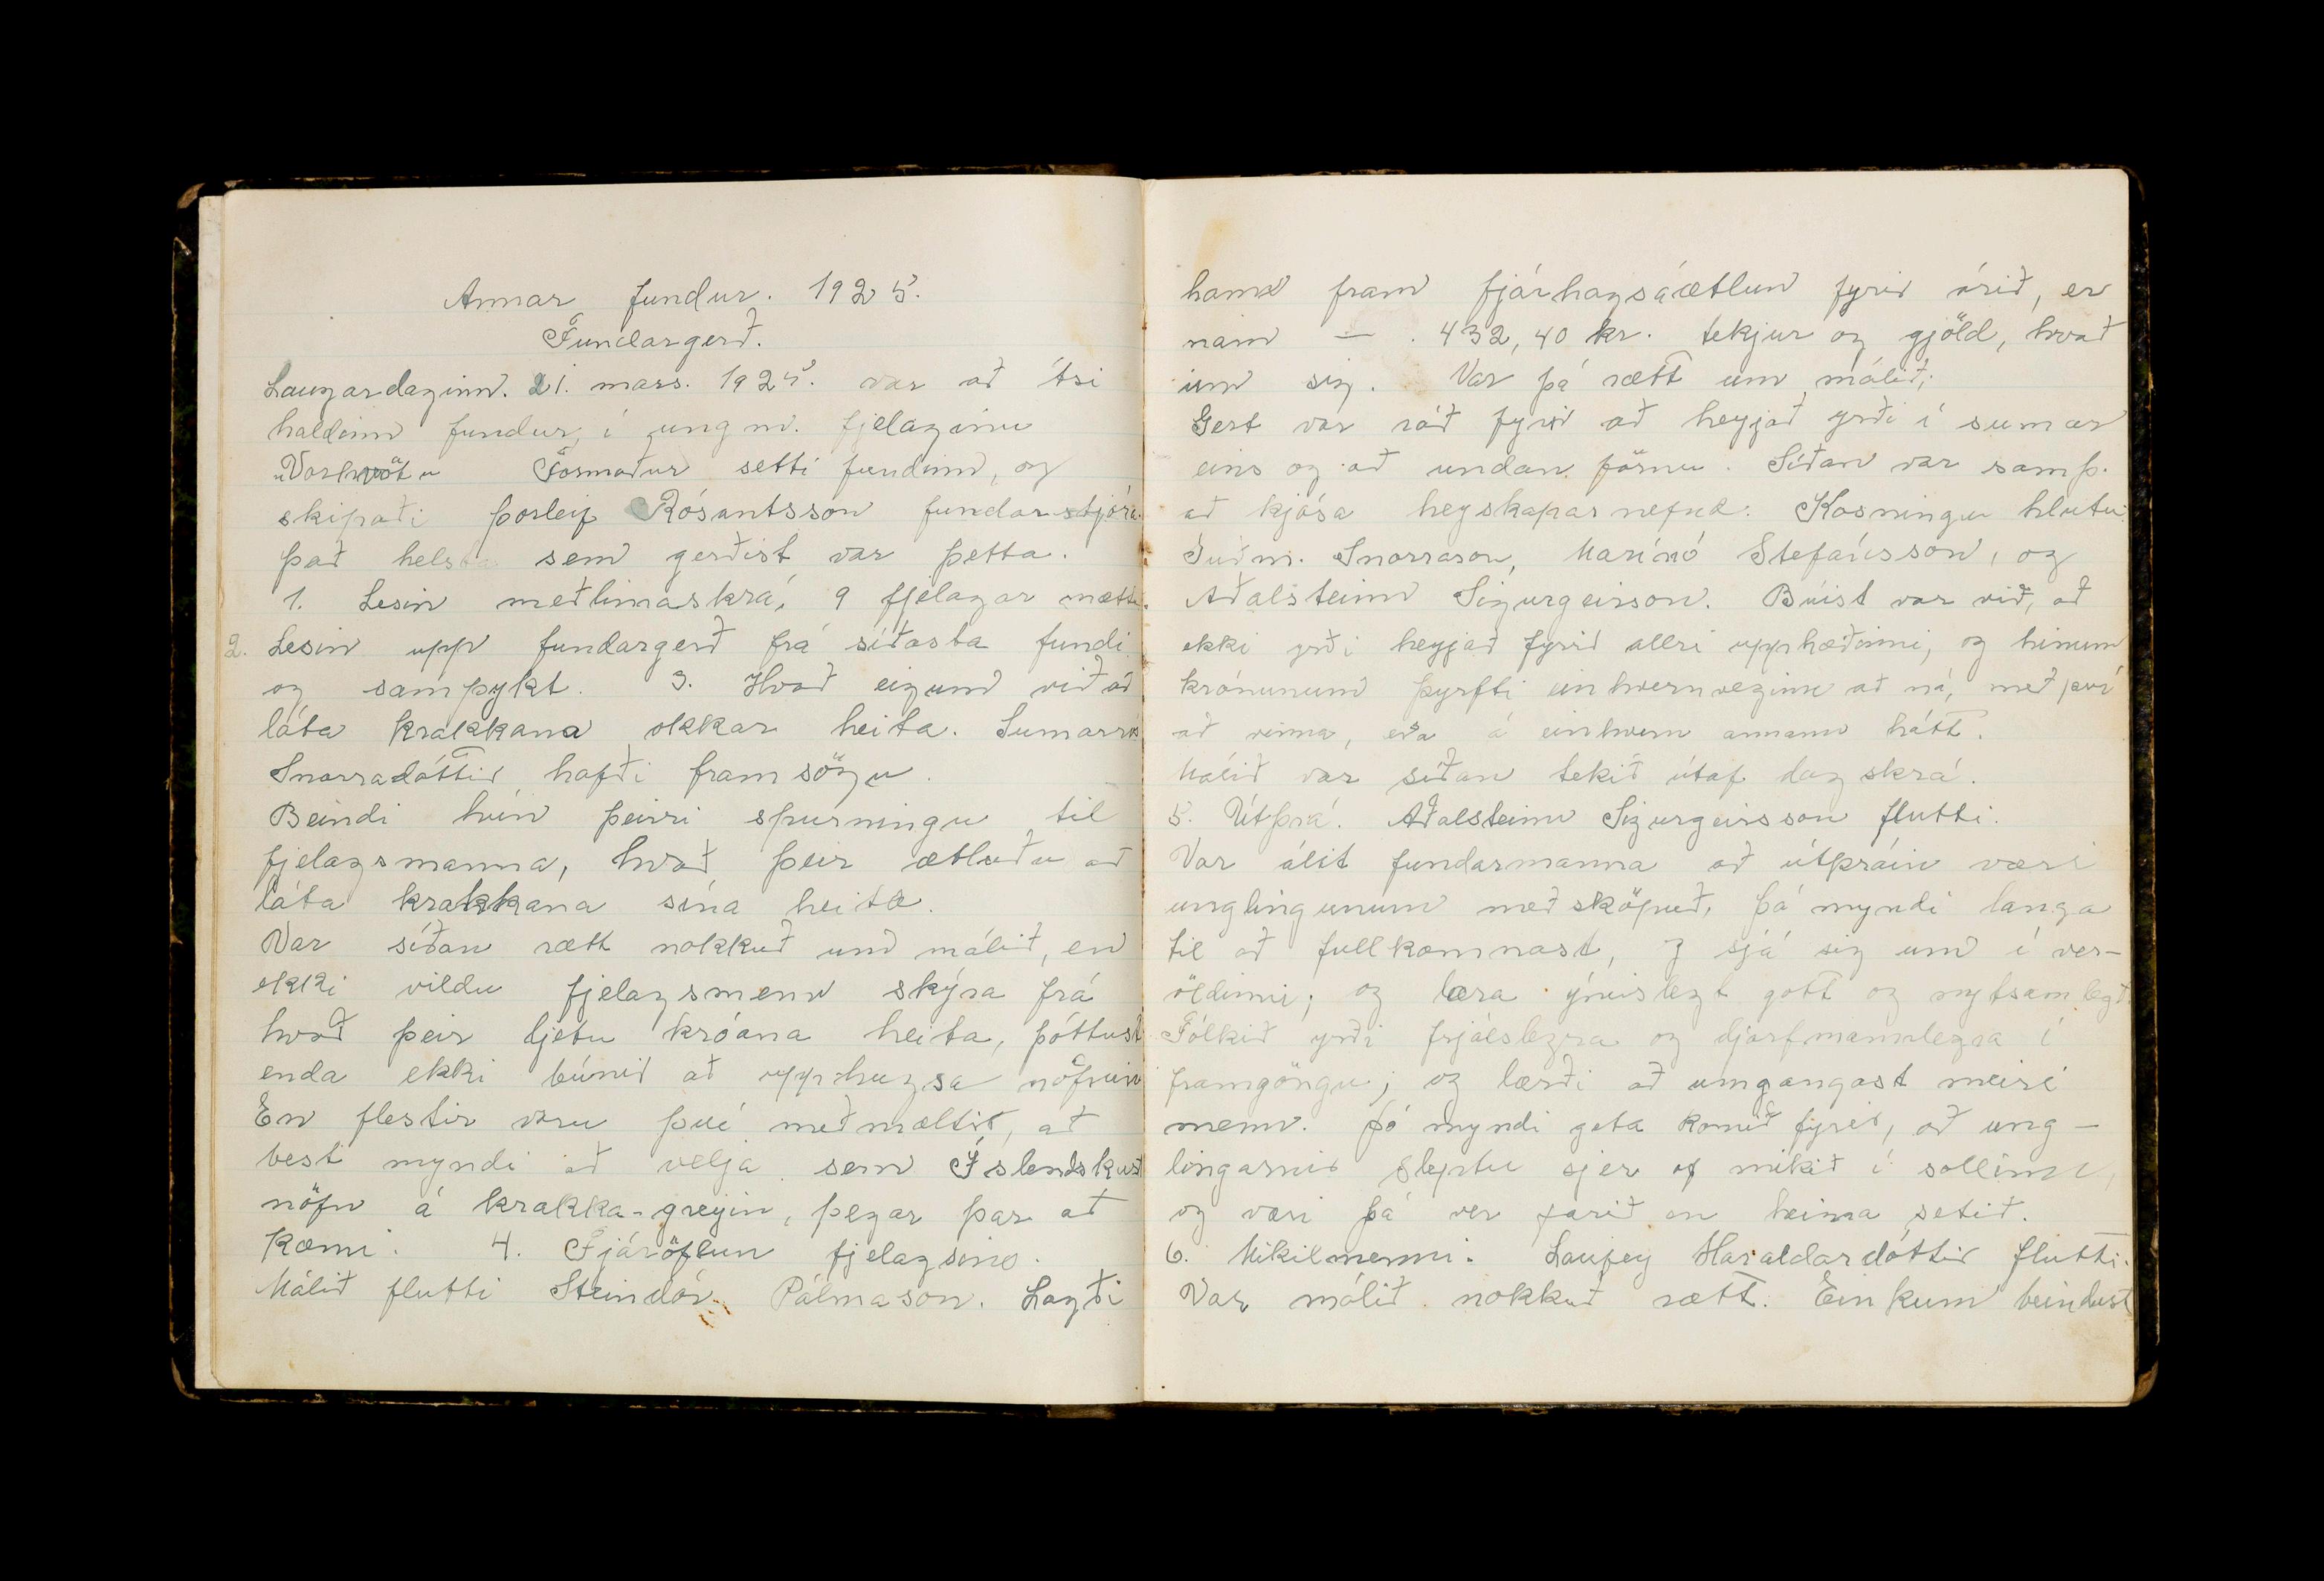 Annar fundur. 1925.
Fundargerð.
Laugardaginn. 21. mars. 1925. var að Ási
haldinn fundur, í ungm. fjelaginu
„Vorhvöt„ Formaður setti fundinn, og
skipaði Þorleif Rósantsson fundarstjóra.
Það helsta sem gerðist var þetta.
1. Lesin meðlimaskrá, 9 fjelagar mættu.
2. Lesin upp fundargerð frá síðasta fundi
og samþykt. 3. Hvað eigum við að
láta krakkana okkar heita. Sumarrós
Snorradóttir hafði framsögu.
Beindi hún þeirri spurningu til
fjelagsmanna, hvað þeir ætluðu að
láta krakkana sína heita.
Var síðan rætt nokkuð um málið, en
ekki vildu fjelagsmenn skýra frá
hvað þeir ljetu króana heita, þóttust
enda ekki búnir að upphugsa nöfnin
En flestir voru því meðmæltir, að
best myndi að velja sem Íslendskust
nöfn á krakka-greyin, þegar þar að
kæmi. 4. Fjáröflun fjelagsins.
Málið flutti Steindór Pálmason. Lagði
hann fram fjárhagsáætlun fyrir árið, er
nam — . 432,40 kr. tekjur og gjöld, hvað
um sig. Var þá rætt um málið;
Gert var ráð fyrir að heyjað yrði í sumar
eins og að undan förnu. Síðan var samþ.
að kjósa heyskaparnefnd. Kosningu hlutu:
Guðm. Snorrason, Marínó Stefánsson, og
Aðalsteinn Sigurgeirson. Búist var við, að
ekki yrði heyjað fyrir allri upphæðinni, og hinum
krónunum þyrfti einhvernveginn að ná, með því
að vinna, eða á einhvern annann hátt.
Málið var síðan tekið útaf dagskrá.
5. Útþrá. Aðalsteinn Sigurgeirsson flutti.
Var álit fundarmanna að útþráin væri
unglingunum með sköpuð, þá myndi langa
til að fullkomnast, og sjá sig um í ver-
öldinni; og læra ýmislegt gott og nytsamlegt.
Fólkið yrði frjálslegra og djarfmannlegra í
framgöngu; og lærði að umgangast meiri
menn. Þó myndi geta komið fyrir, að ung-
lingarnir slepptu sjer of mikið í sollinn,
og væri þá ver farið en heima setið.
6. Mikilmenni. Laufey Haraldardóttir flutti.
Var málið nokkuð rætt. Einkum beindust